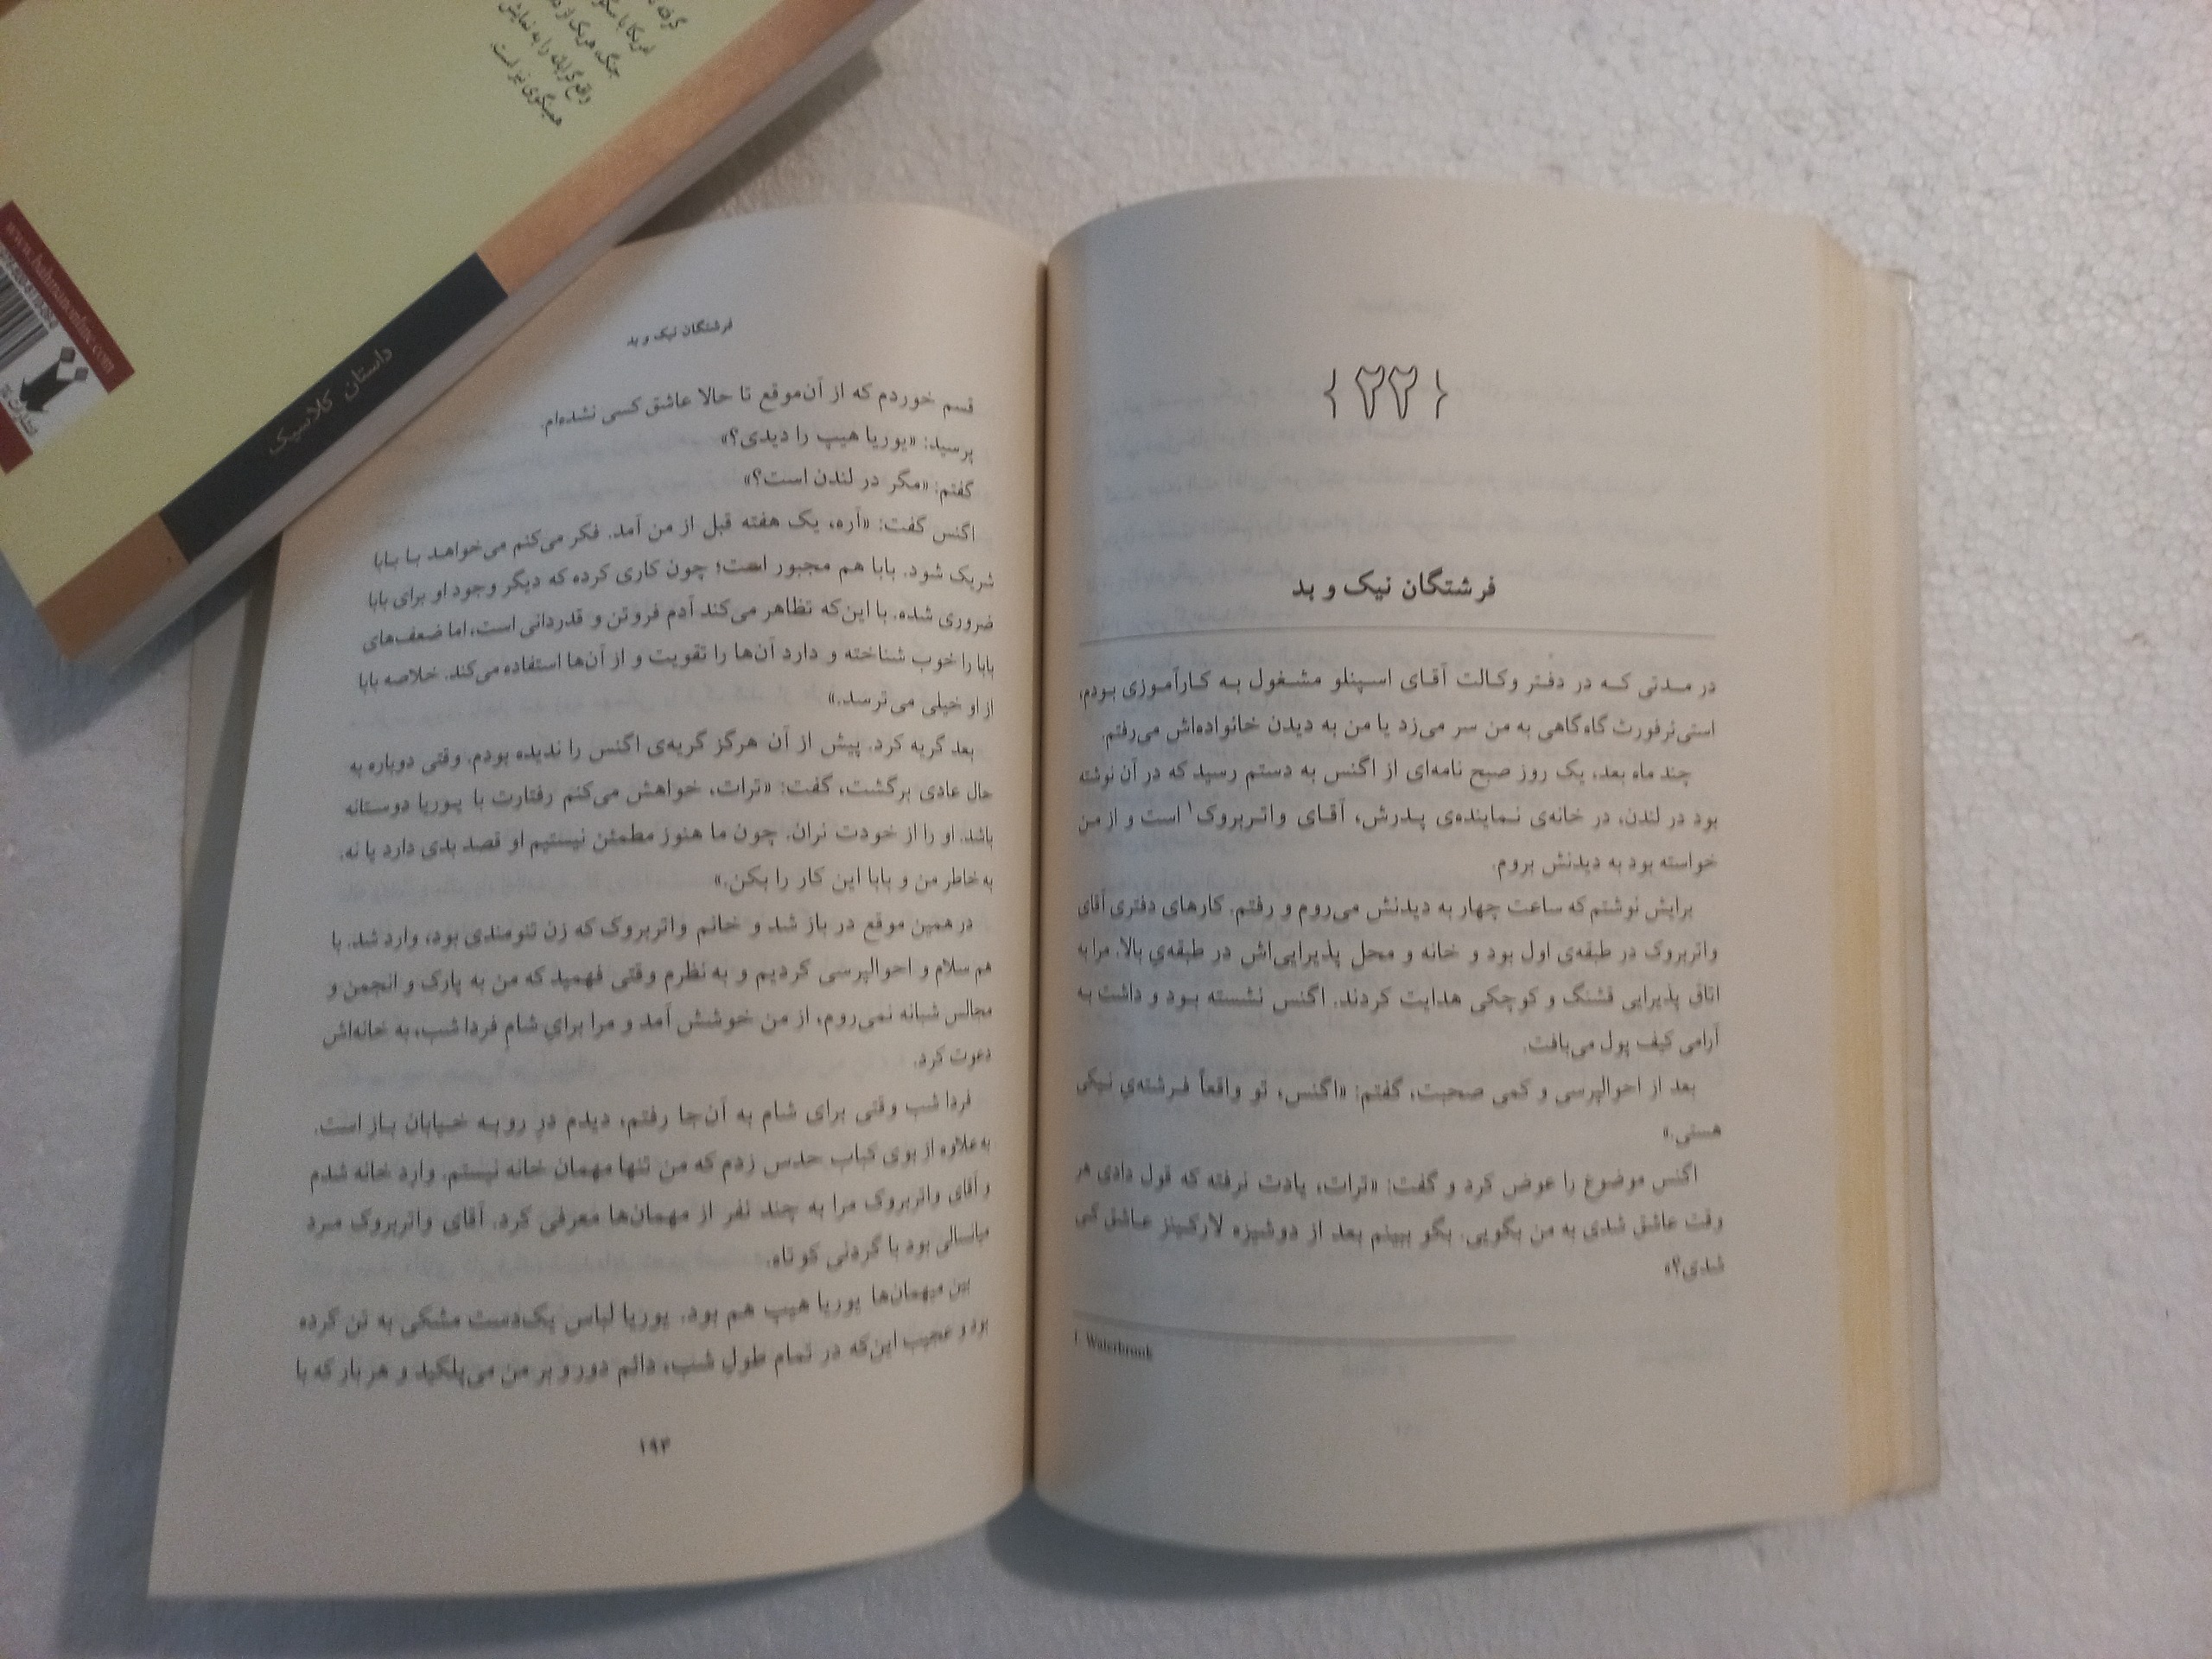 گرفته
آفریقا با
جنگ، هریک از
واقع‌گرایانه را به نمایش
همینگوی نیز است.
www.bahmanonline.com
داستان کلاسیک
{۲۲}
فرشتگان نیک و بد
در مـدتی کـه در دفـتر وکـالت آقـای اسـپنلو مشـغول بـه کـارآمـوزی بـودم،
استی‌ئرفورث گاه‌گاهی به من سر می‌زد یا من به دیدن خانواده‌اش می‌رفتم.
چند ماه بعد، یک روز صبح نامه‌ای از اگنس به دستم رسید که در آن نوشته
بود در لندن، در خانه‌ی نـماینده‌ی پـدرش، آقـای واتـربروک۱ است و از مـن
خواسته بود به دیدنش بروم.
برایش نوشتم که ساعت چهار به دیدنش می‌روم و رفتم. کارهای دفتری آقای
واتربروک در طبقه‌ی اول بود و خانه و محل پذیرایی‌اش در طبقه‌ی بالا. مرا به
اتاق پذیرایی قشنگ و کوچکی هدایت کردند. اگنس نشسته بـود و داشت بـه
آرامی کیف پول می‌بافت.
بعد از احوالپرسی و کمی صحبت، گفتم: «اگنس، تو واقعاً فـرشته‌ي نیکی
هستی.»
اگنس موضوع را عوض کرد و گفت: «ترات، یادت نرفته که قول دادی هر
وقت عاشق شدی به من بگویی. بگو ببینم بعد از دوشیزه لارکینز عـاشق کـی
شدی؟»
1. Waterbrook
فرشتگان نیک و بد
قسم خوردم که از آن‌موقع تا حالا عاشق کسی نشده‌ام.
پرسید: «یوریا هیپ را دیدی؟»
گفتم: «مگر در لندن است؟»
اگنس گفت: «آره، یک هفته قبل از من آمد. فکر می‌کنم می‌خواهـد بـا بـابا
شریک شود. بابا هم مجبور است؛ چون کاری کرده که دیگر وجود او برای بابا
ضروری شده. با این‌که تظاهر می‌کند آدم فروتن و قدردانی است، اما ضعف‌های
بابا را خوب شناخته و دارد آن‌ها را تقویت و از آن‌ها استفاده می‌کند. خلاصه بابا
از او خیلی می‌ترسد.»
بعد گریه کرد. پیش از آن هرگز گریه‌ی اگنس را ندیده بودم. وقتی دوباره به
حال عادی برگشت، گفت: «ترات، خواهش می‌کنم رفتارت با یـوریا دوستانه
باشد. او را از خودت نران. چون ما هنوز مطمئن نیستیم او قصد بدی دارد یا نه.
به خاطر من و بابا این کار را بکن.»
در همین موقع در باز شد و خانم واتربروک که زن تنومندی بود، وارد شد. با
هم سلام و احوالپرسی کردیم و به نظرم وقتی فهمید که من به پارک و انجمن و
مجالس شبانه نمی‌روم، از من خوشش آمد و مرا برايِ شامِ فردا شب، به خانه‌اش
دعوت کرد.
فردا شب وقتی برای شام به آن‌جا رفتم، دیدم درِ رو بـه خـیابان بـاز است.
به علاوه از بوی کباب حدس زدم که من تنها مهمان خانه نیستم. وارد خانه شدم
و آقای واتربروک مرا به چند نفر از مهمان‌ها معرفی کرد. آقای واتربروک مـرد
میانسالی بود با گردنی کوتاه.
بین میهمان‌ها یوریا هیپ هم بود. یوریا لباس یک‌دست مشکی به تن کرده
بود و عجیب این‌که در تمام طول شب، دائم دور و بر من می‌پلکید و هر بار که با
۱۹۴